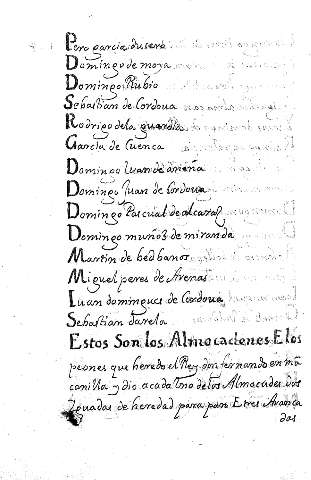 Pero garcia dusero
Domingo de moya
Domingo Rubio
Sebastian de Cordoua
Rodrigo dela guardia
Garcia de Cuenca
Domingo Iuan de
Domingo Juan de Cordoua
Domingo Pascual de alcaraz
Domingo muñoz de miranda
Martin de bedbanos
Miguel peres de Arenas
Iuan domingues de Cordoua
Sebastian varela
Estos Son los Almocadenes E los
peones que heredo el Rey don fernando en mā
canilla y dio acada Uno delos Almocades dos
Youadas de heredad para pan E tres Arança
das